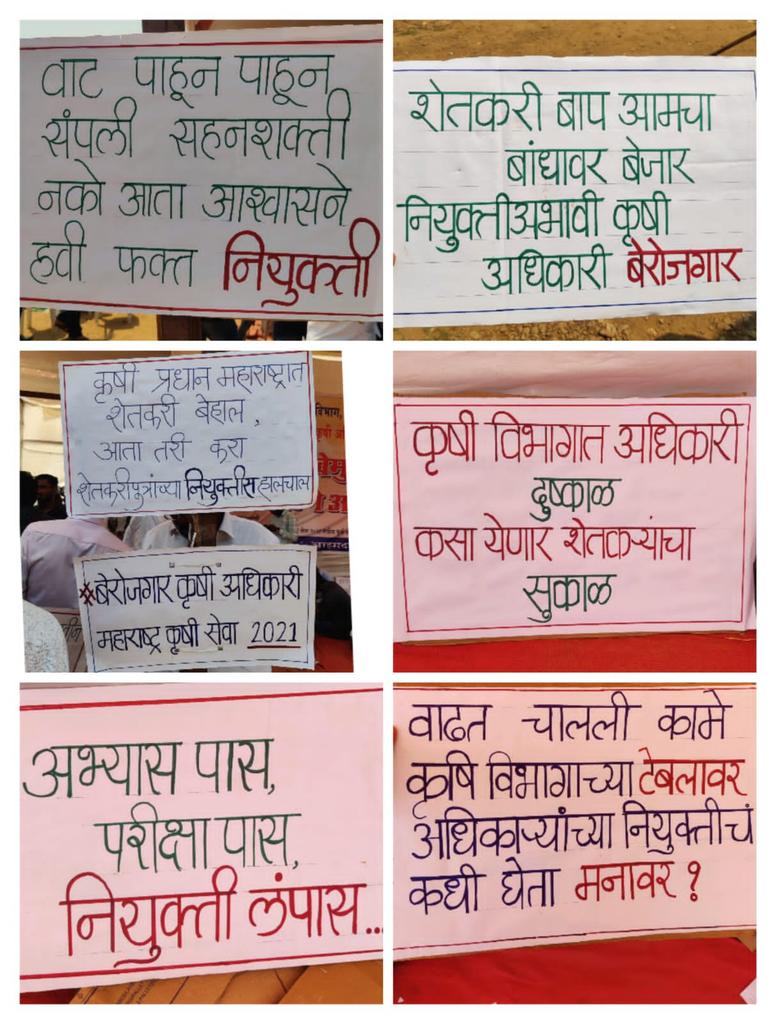 वाट पाहून पाहून
संपली सहनशक्ती
नको आता आश्वासने
हवी फक्त नियुक्ती
शेतकरी बाप आमचा
बांधावर बेजार
नियुक्तीअभावी कृषी
अधिकारी बेरोजगार
कृषी प्रधान महाराष्ट्रात
शेतकरी बेहाल,
आता तरी करा
शेतकरीपुत्रांच्या नियुक्तीस हालचाल
#बेरोजगार कृषी अधिकारी
महाराष्ट्र कृषी सेवा 2021
कृषी विभागात अधिकारी
दुष्काळ
कसा येणार शेतकऱ्यांचा
सुकाळ
अभ्यास पास,
परीक्षा पास,
नियुक्ती लंपास...
वाढत चालली कामे
कृषि विभागाच्या टेबलावर
अधिकाऱ्यांच्या नियुक्तीचं
कधी घेता मनावर ?